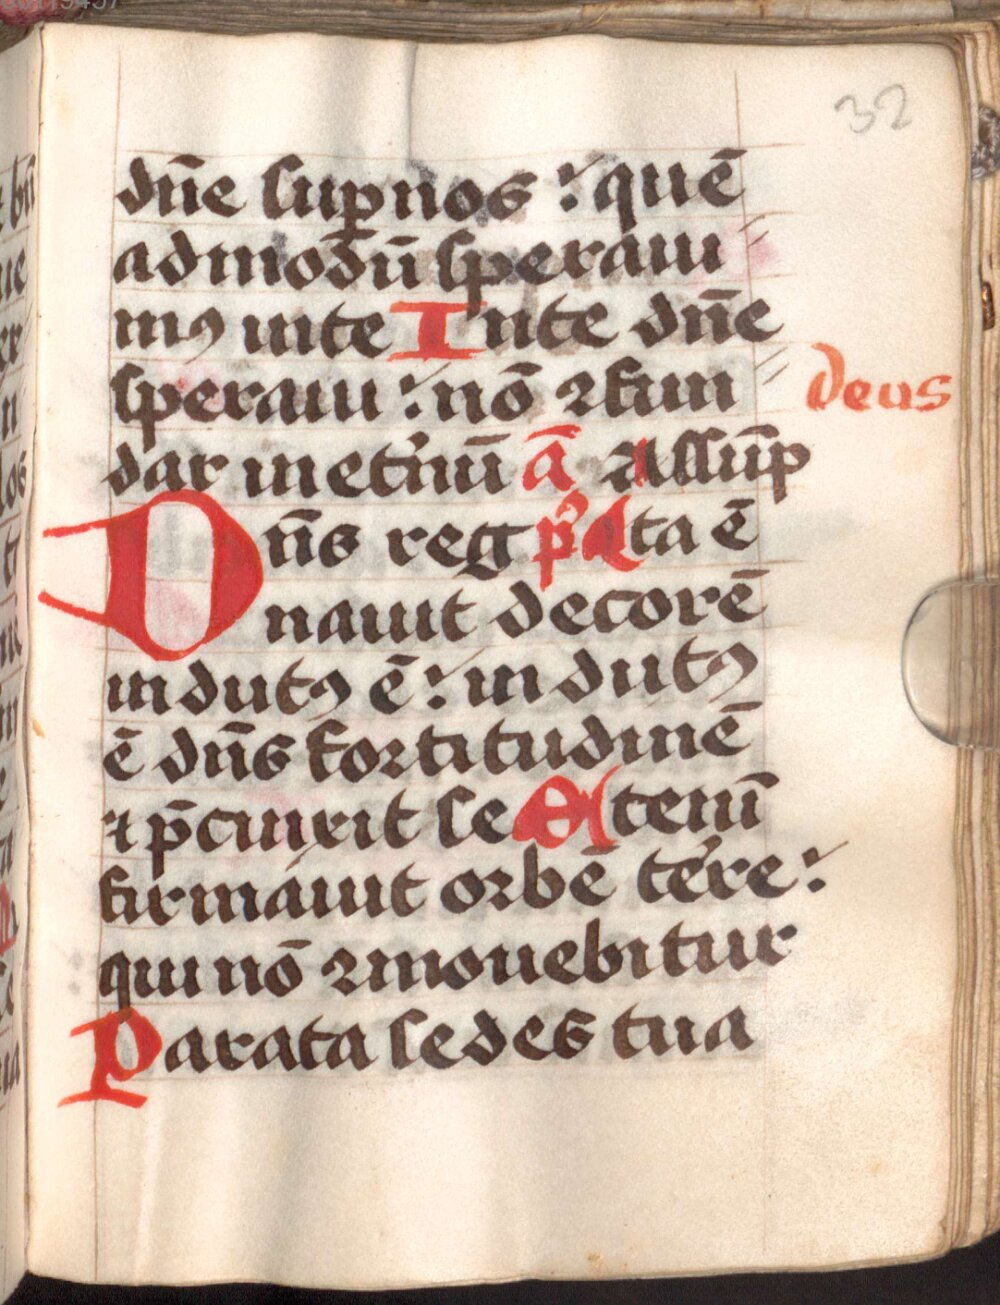 32
dn̄e sup̱nos : quē
admodū speraui
mꝰ inte Inte dn̄e
speraui : nō ꝯfun
deus
dar inet̓nū ā Assūp
Dn̄s reg p̄s ta ē
nauit decorē
indutꝰ ē : indutꝰ
ē dn̄s fortitudinē
⁊ p̄cinxit se Etenī
firmauit orbē terre :
qui nō ꝯmouebitur
Parata sedes tua